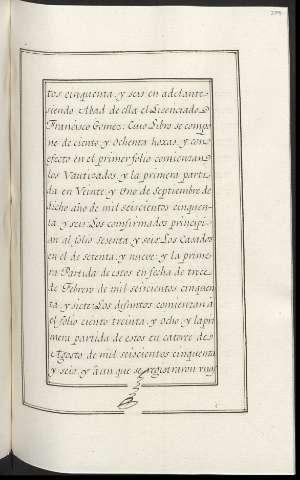 tos cinquenta y seis en adelante
siendo Abad de ella el Licenciado D.
Francisco Gomez: Cuio Libro se compo
ne de ciento y ochenta hoxas y con
efecto en el primer folio comienzan
los Vautizados y la primera parti
da en Veinte y Uno de Septiembre de
dicho año de mil seiscientos cinquen
ta y seis Los confirmados principi
an al folio sesenta y seis Los Casados
en el de setenta y nueve: y la prime
ra Partida de estos en fecha de trece
de Febrero de mil seiscientos cinquen
ta y siete Los difuntos comienzan a
el folio ciento treinta y ocho y la pri
mera partida de estos en catorce de
Agosto de mil seiscientos cinquenta
y seis y aun que se registraron